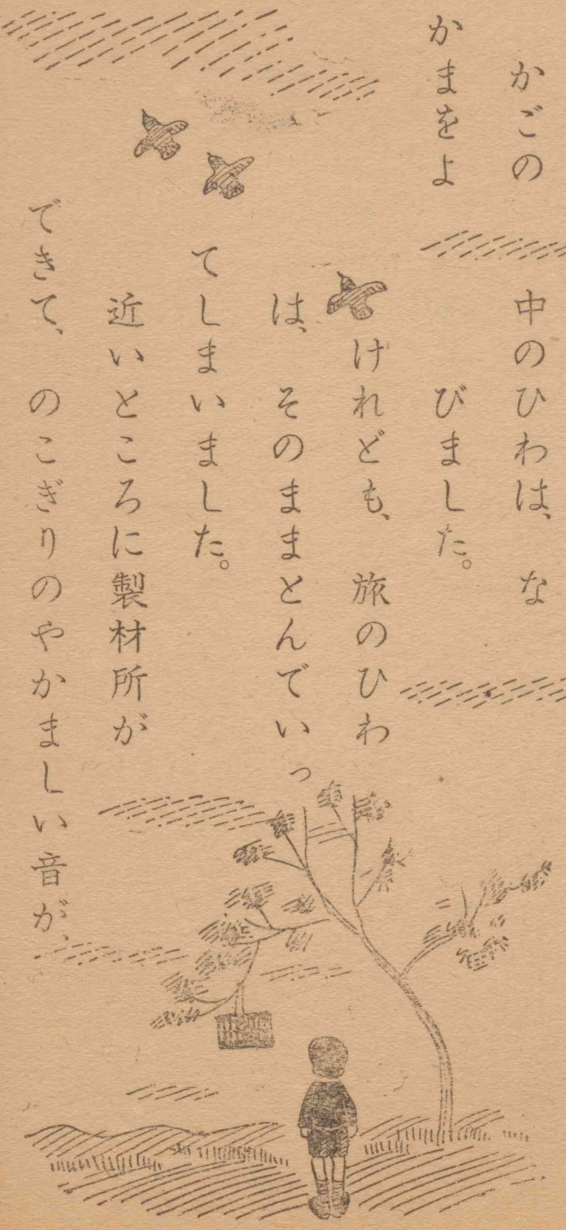 かごの中のひわは、な
かまをよびました。
けれども、旅のひわ
は、そのままとんでいっ
てしまいました。
近いところに製材所が
できて、のこぎりのやかましい音が、